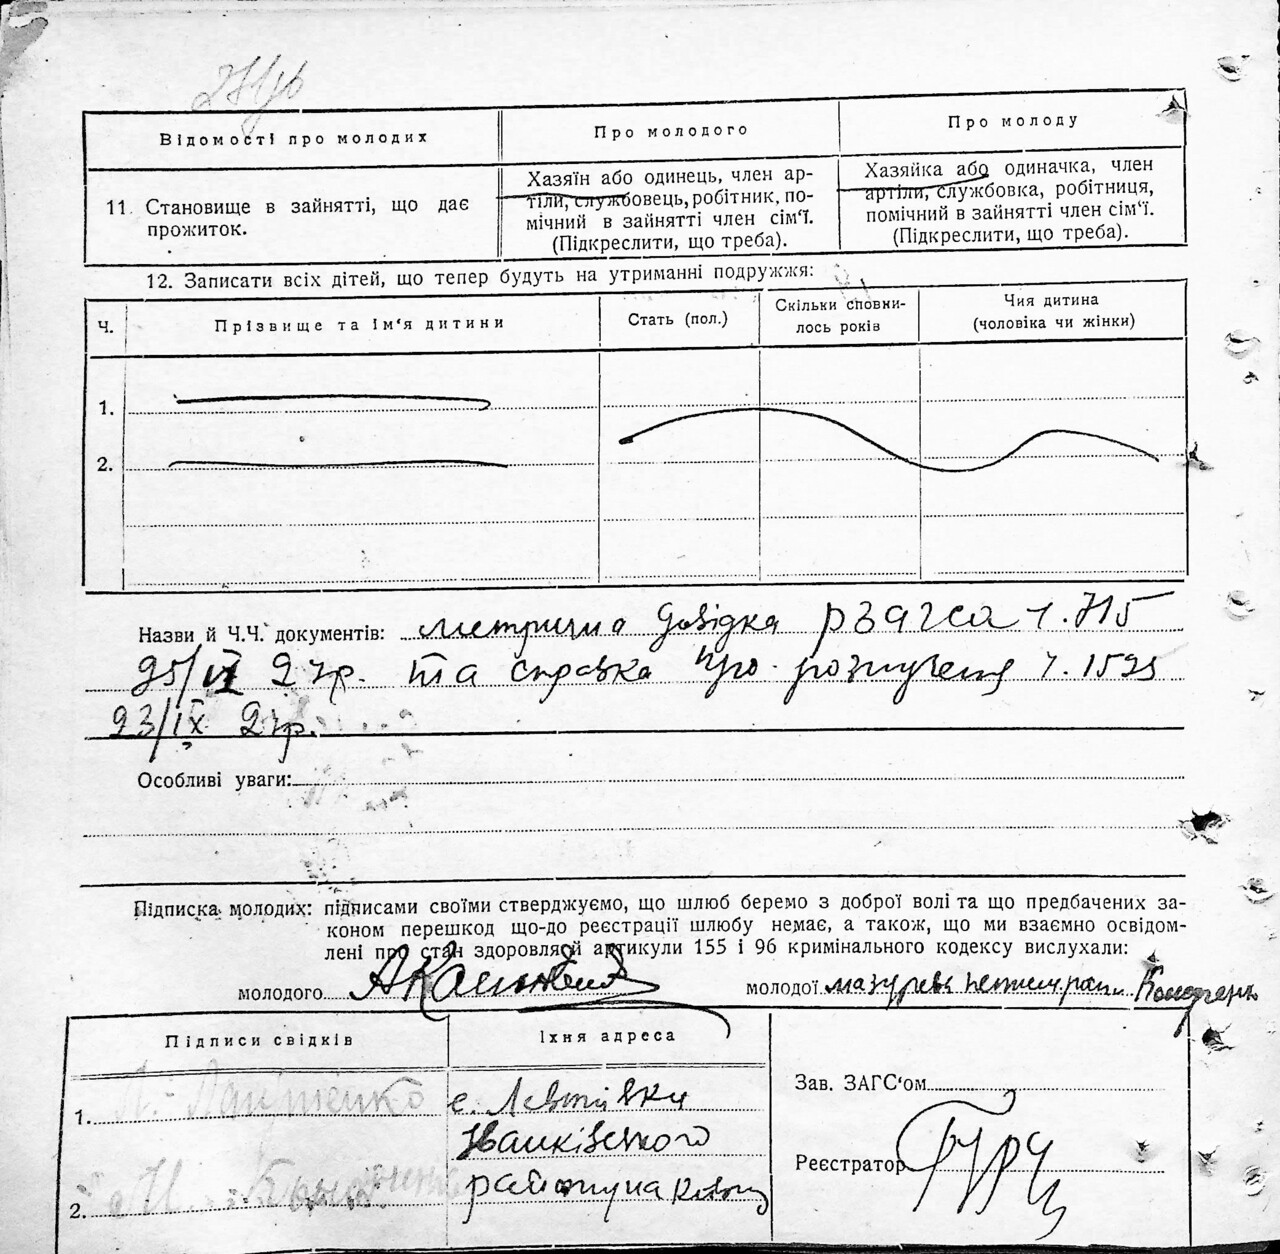 Відомості про молодих
Про молодого
Про молоду
11. Становище в зайнятті, що дає
прожиток.
Хазяїн або одинець, член ар-
тіли, службовець, робітник, по-
мічний в зайнятті член сім'ї.
(Підкреслити, що треба).
Хазяйка або одиначка, член
артіли, службовка, робітниця,
помічний в зайнятті член сім'ї.
(Підкреслити, що треба).
12. Записати всіх дітей, що тепер будуть на утриманні подружжя:
Ч.
Прізвище та ім'я дитини
Стать (пол.)
Скільки сповни-
лось років
Чия дитина
(чоловіка чи жінки)
1.
2.
Назви й Ч.Ч. документів: метрична довідка рзагса ч. 715
25/IX 27р. та справка про ч. 1525
23/IX 27р.
Особливі уваги:
Підписка молодих: підписами своїми стверджуємо, що шлюб беремо з доброї волі та що предбачених за-
коном перешкод що-до реєстрації шлюбу немає, а також, що ми взаємно освідом-
лені про стан здоровля й артикули 155 і 96 кримінального кодексу вислухали:
молодого
молодої
Підписи свідків
Їхня адреса
1.
с.
Іваньківського
району на
2.
Зав. ЗАГС'ом
Реєстратор